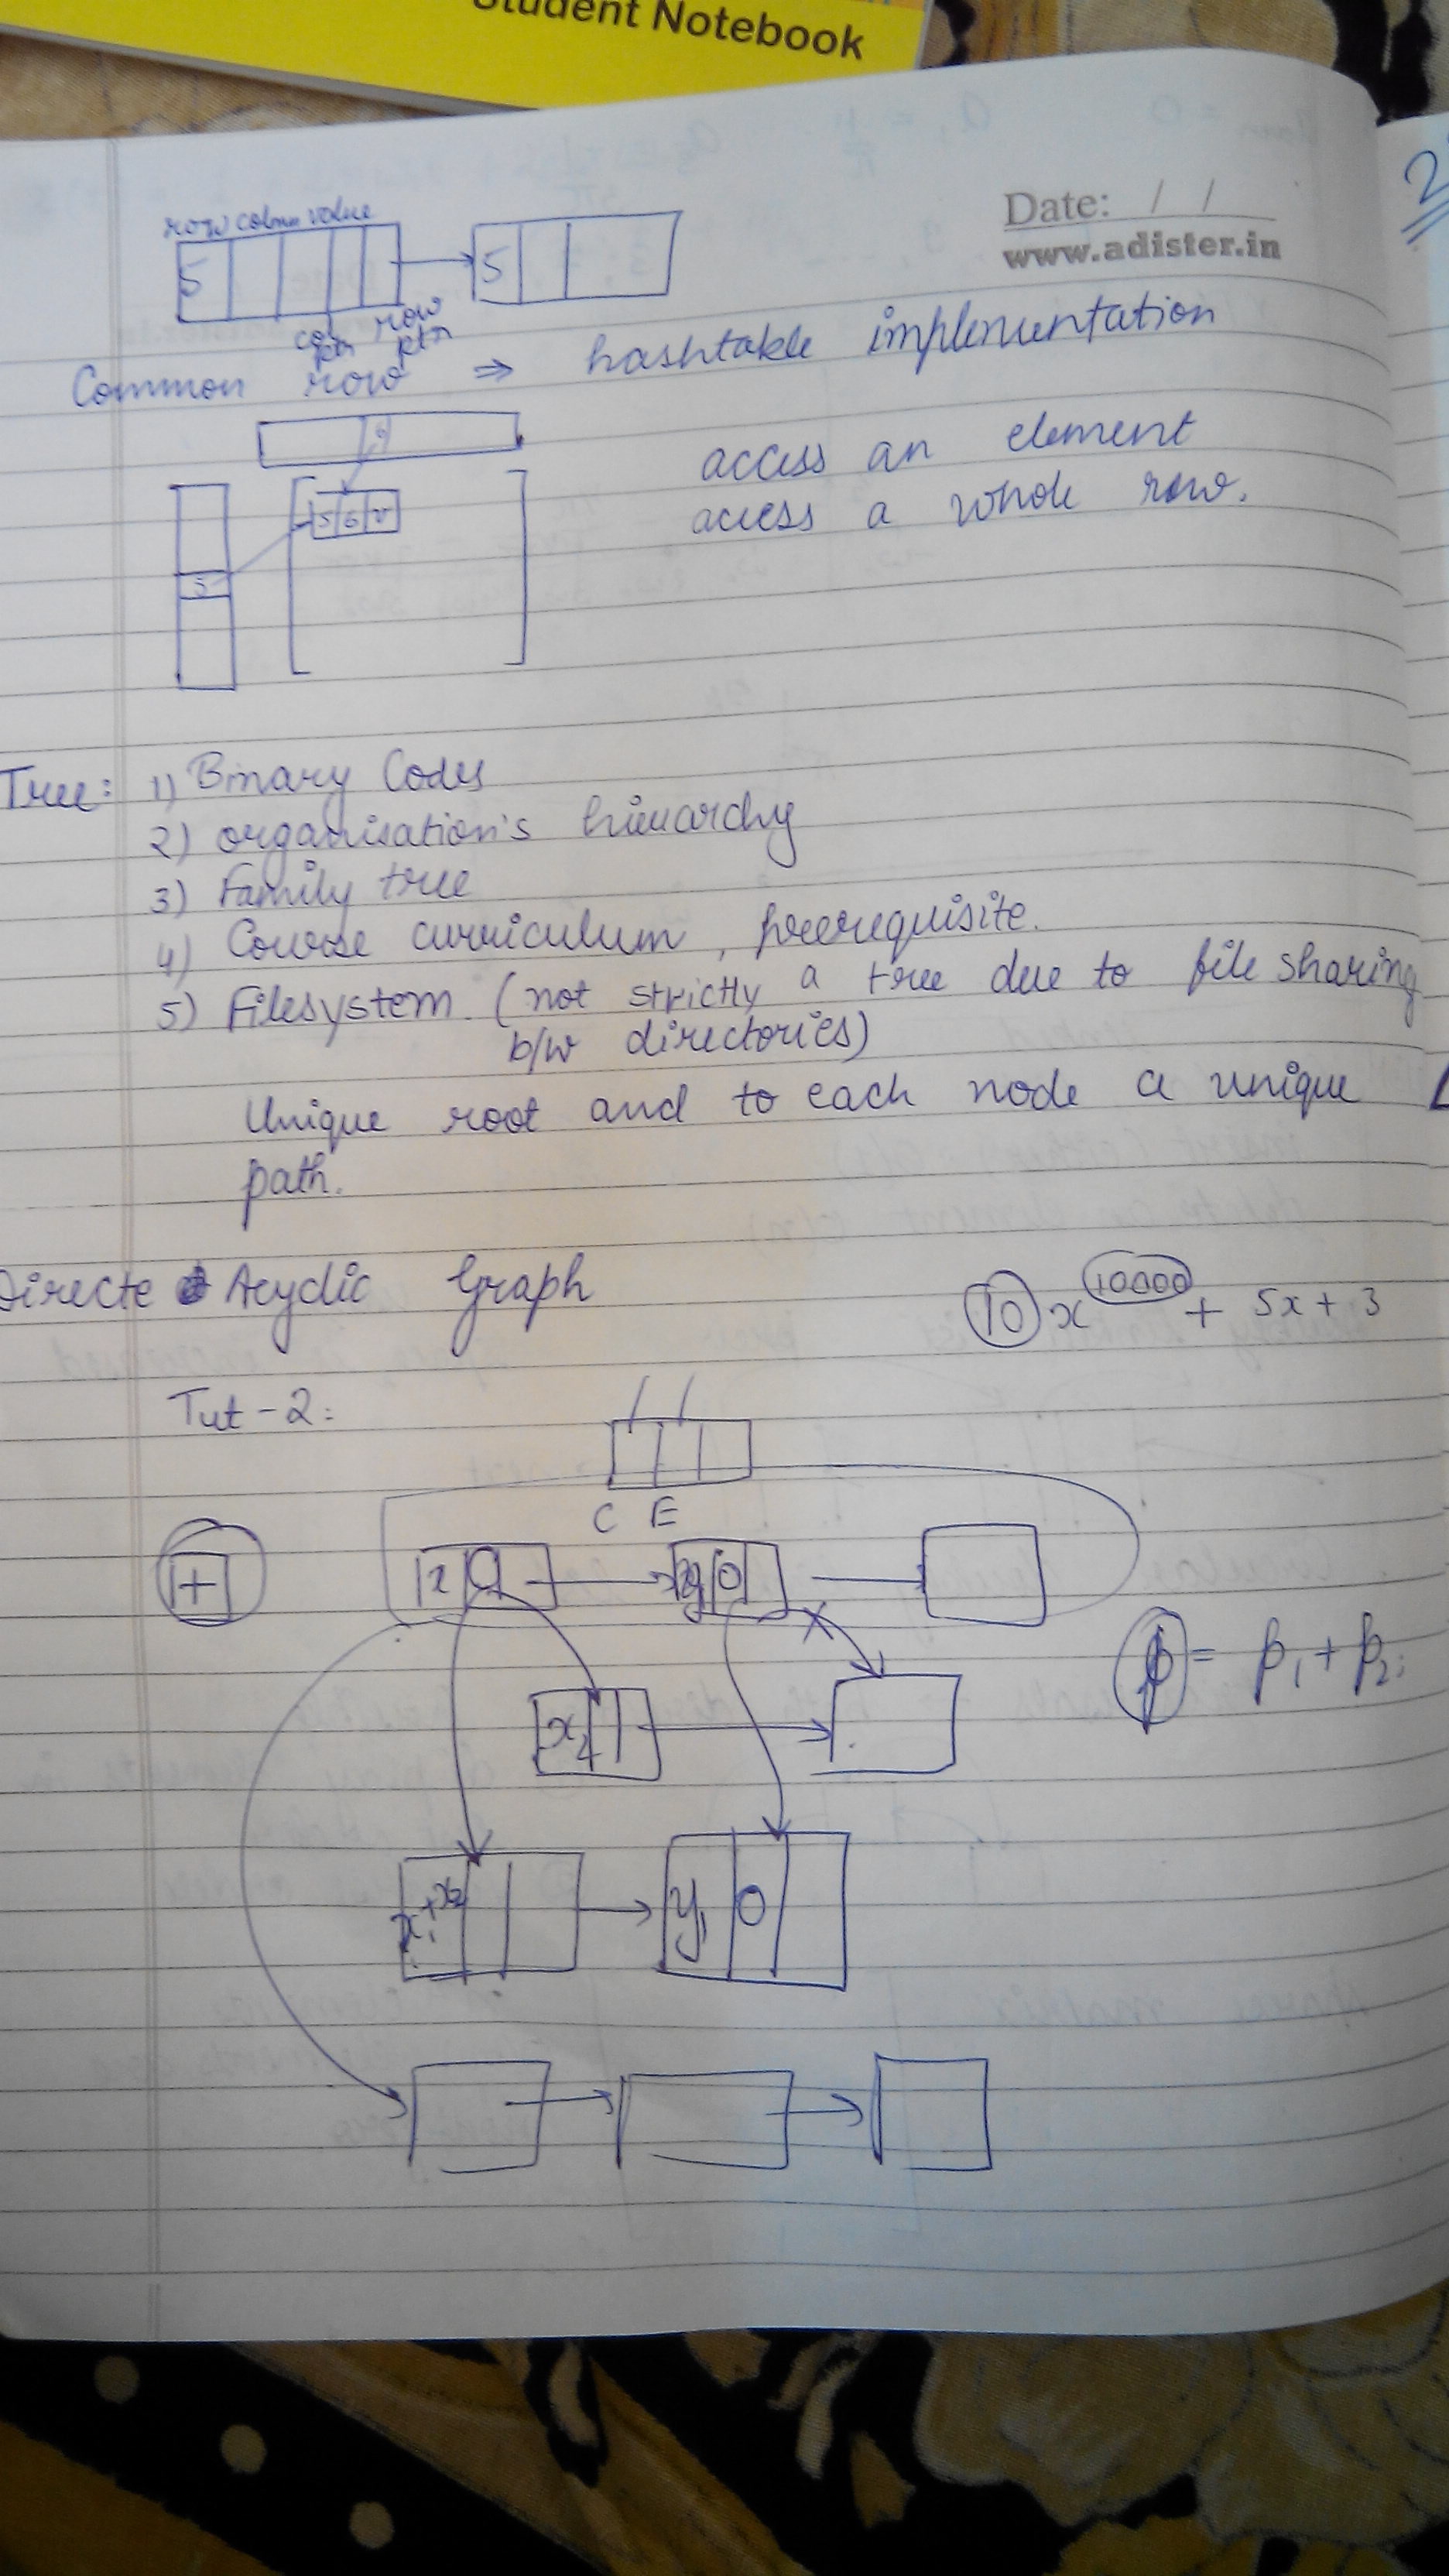 Student Notebook
Date: / /
www.adister.in
row column value
5 5
col ptr row ptr
Common row ⇒ hashtable implementation
6
access an element
5 6 v
access a whole row.
5
Tree: 1) Binary Codes
2) organisation's hierarchy
3) Family tree
4) Course curriculum, prerequisite.
5) Filesystem (not strictly a tree due to file sharing
b/w directories)
Unique root and to each node a unique
path.
Directe Acyclic Graph
10 x^10000 + 5x + 3
Tut-2:
C E
+
0
p = p1 + p2;
x2
x1+x2 y1 0